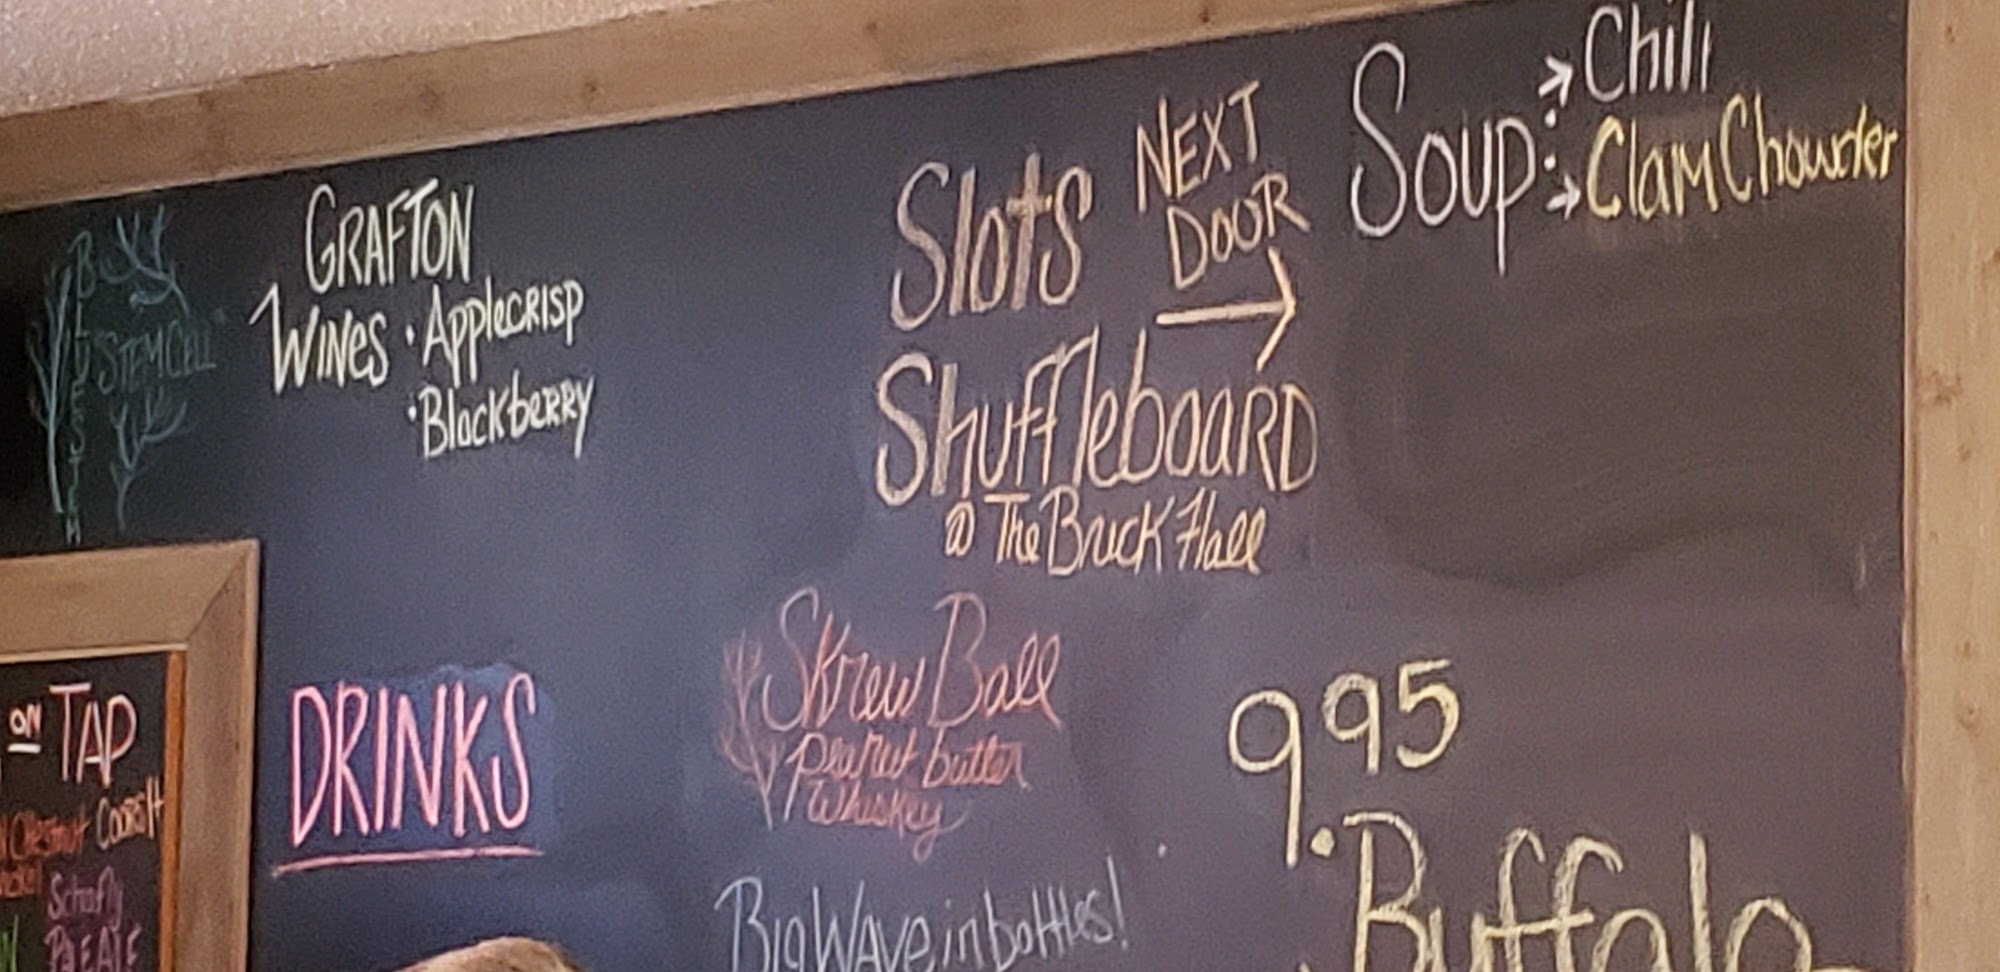 GRAFTON
WINES • Applecrisp
• Blackberry
"STEM CELL"
Slots NEXT
DOOR
→
Shuffleboard
@ The Brick Hall
Soup: → Chili
→ Clam Chowder
DRINKS
Skrew Ball
peanut butter
Whiskey
Big Wave in bottles!
9.95
Buffalo
ON TAP
Coors Lt
Schafly
PALE ALE